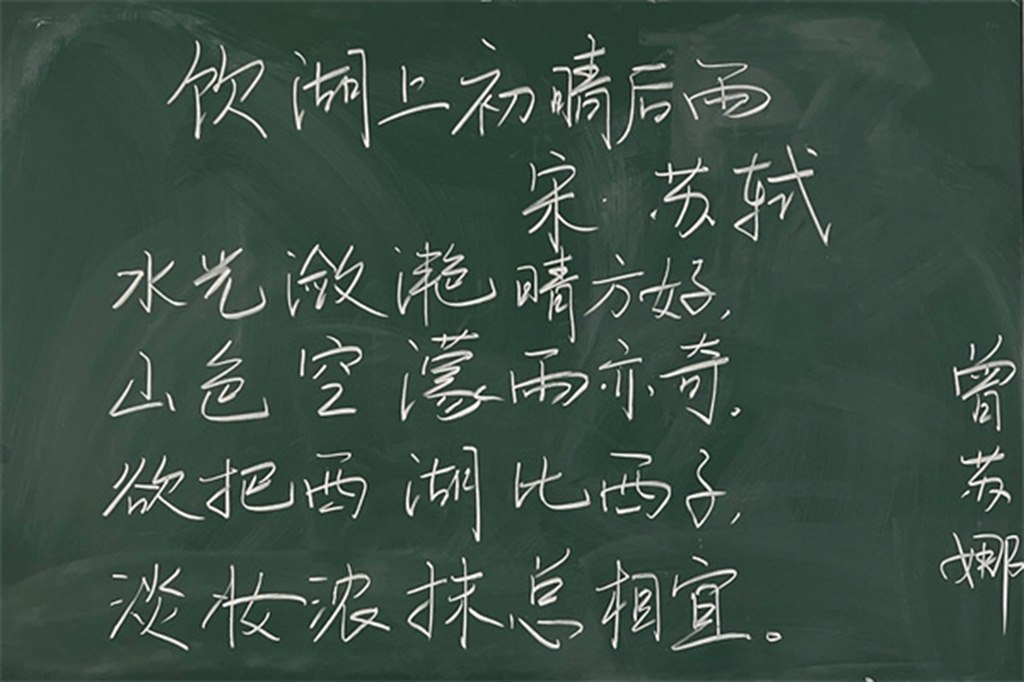 饮湖上初晴后雨
宋·苏轼
水光潋滟晴方好,
山色空濛雨亦奇.
欲把西湖比西子,
淡妆浓抹总相宜。
曾苏娜